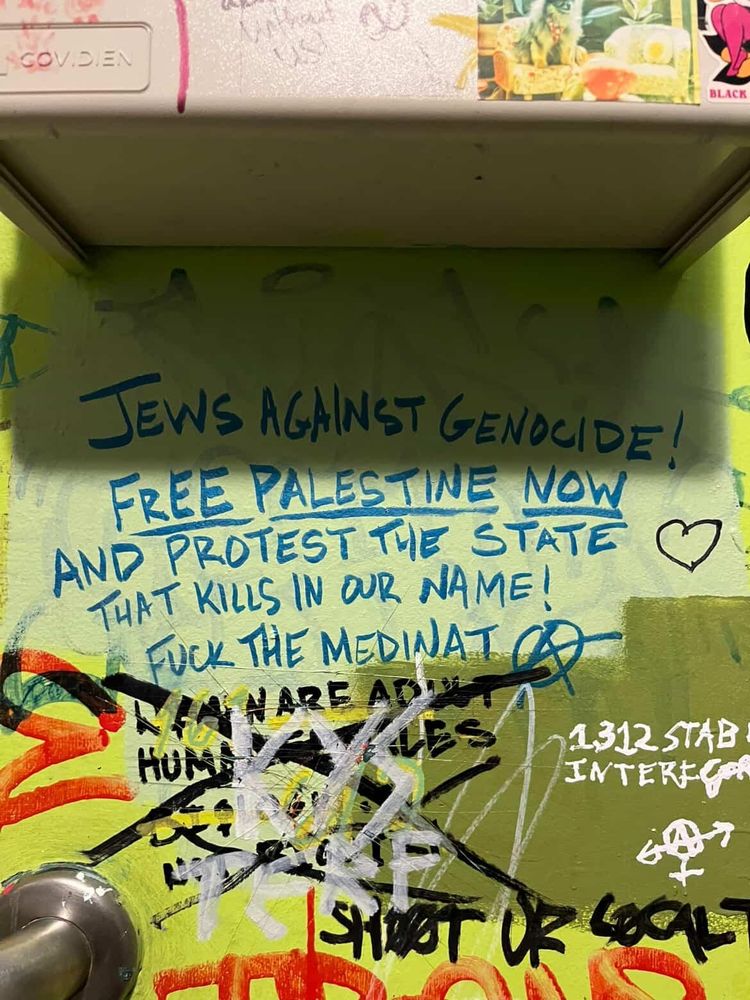 COVIDIEN
without
us
BLACK
JEWS AGAINST GENOCIDE!
FREE PALESTINE NOW
AND PROTEST THE STATE
THAT KILLS IN OUR NAME!
FUCK THE MEDINAT Ⓐ
ARE ADULT
HUMAN
KYS
TERF
1312 STAB
Ⓐ
SHOOT UR LOCAL T